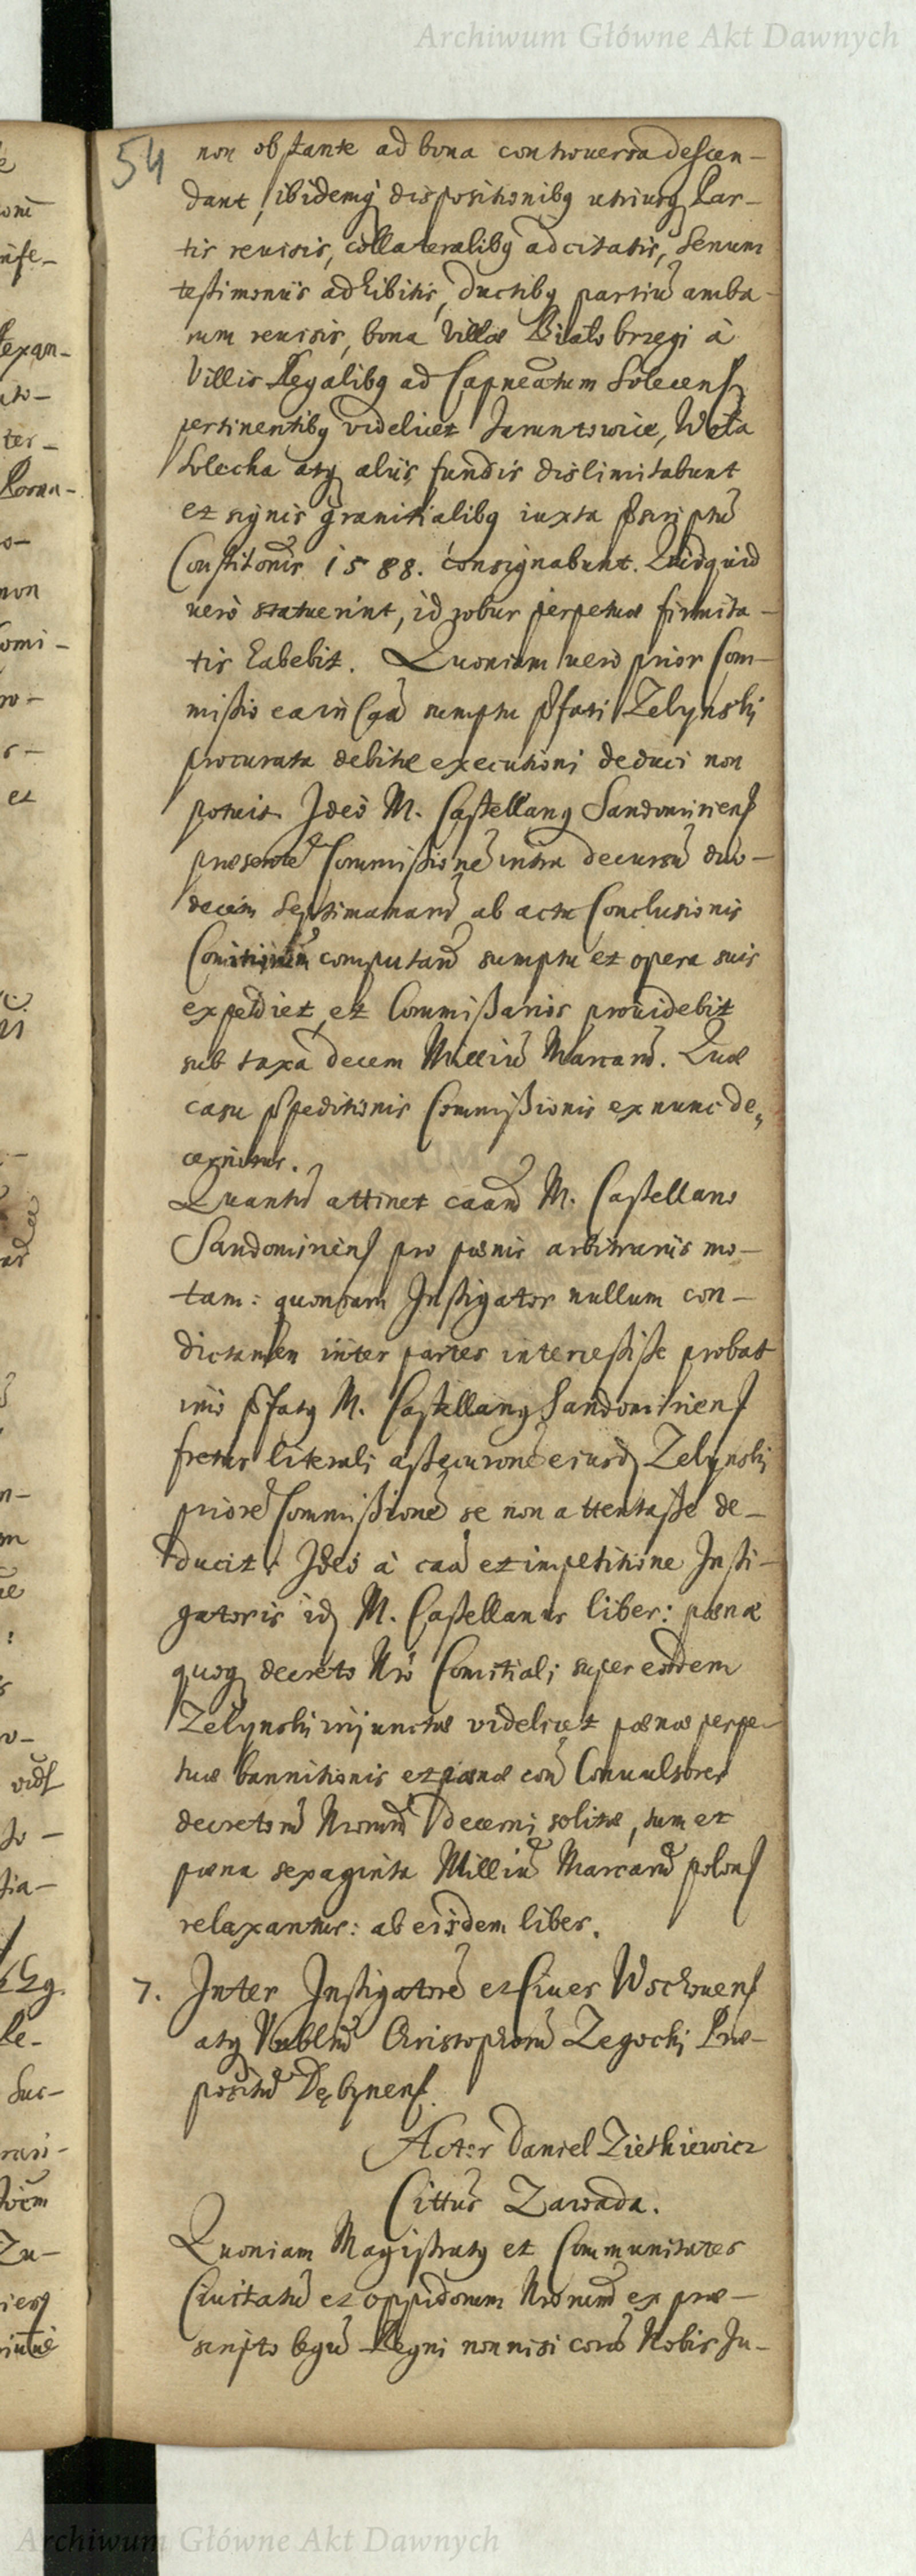 Archiwum Główne Akt Dawnych
54
non obstante ad bona controuersa descen-
dant, ibidemq dispositionibq utriusq Par-
tis reuisis, collateralibq adcitatis, Senum
testimoniis adhibitis, ductibq partiū amba-
rum reuisis, bona Villæ Białobrzegi à
Villis Regalibq ad Capneatum Solecens
pertinentibq videlicet Jaruntowice, Wola
Solecka atq aliis fundis dislimitabunt
et signis granitialibq iuxta pscriptū
Constitonis 1588. consignabunt. Quidquid
uerò statuerint, id robur perpetuæ firmita-
tis habebit. Quoniam uerò prior Com-
missio ea in Caā sumptu pfati Zelynski
procurata debitæ executioni deduci non
potuit. Ideò M. Castellanq Sandomiriens
præsentē Commissionē intra decursū duo-
decim Septimanarū ab actu Conclusionis
Comitiorum computandū sumptu et opera suis
expediet, et Commissarios prouidebit
sub taxa decem Milliū Marcarū. Quæ
casu pspeditionis Commissionis ex nunc de,
cernitur.
Quantū attinet caam M. Castellano
Sandomiriens pro pœnis arbitrariis mo-
tam: quoniam Instigator nullum con-
dictamen inter partes intercessisse probat
imò pfatq M. Castellanq Sandomiriens
fretus literali assecuronē eiusd Zelynski
priorē Commissionē se non attentasse de-
ducit: Ideò à caā et impetitione Insti-
gatoris id M. Castellanus liber: pœnæ
quoq decreto Nrō Comitiali super eodem
Zelynski injunctæ videlicet pœnæ perpe-
tuæ bannitionis et pœnæ con Conuulsores
decretorū Nrorum decerni solitæ, tum et
pœna sexaginta Milliū Marcarū polons
relaxantur: ab eisdem liber.
7. Inter Instigatorē et Ciues Wschouens
atq Vnblem Christophorū Zegocki Præ-
positū Dębynens.
Actor Daniel Zietkiewicz
Cittus Zawada.
Quoniam Magistratq et Communitates
Ciuitatū et oppidorum Nrorum ex præ-
scripto legū Regni nonnisi corā Nobis Iu-
Archiwum Główne Akt Dawnych